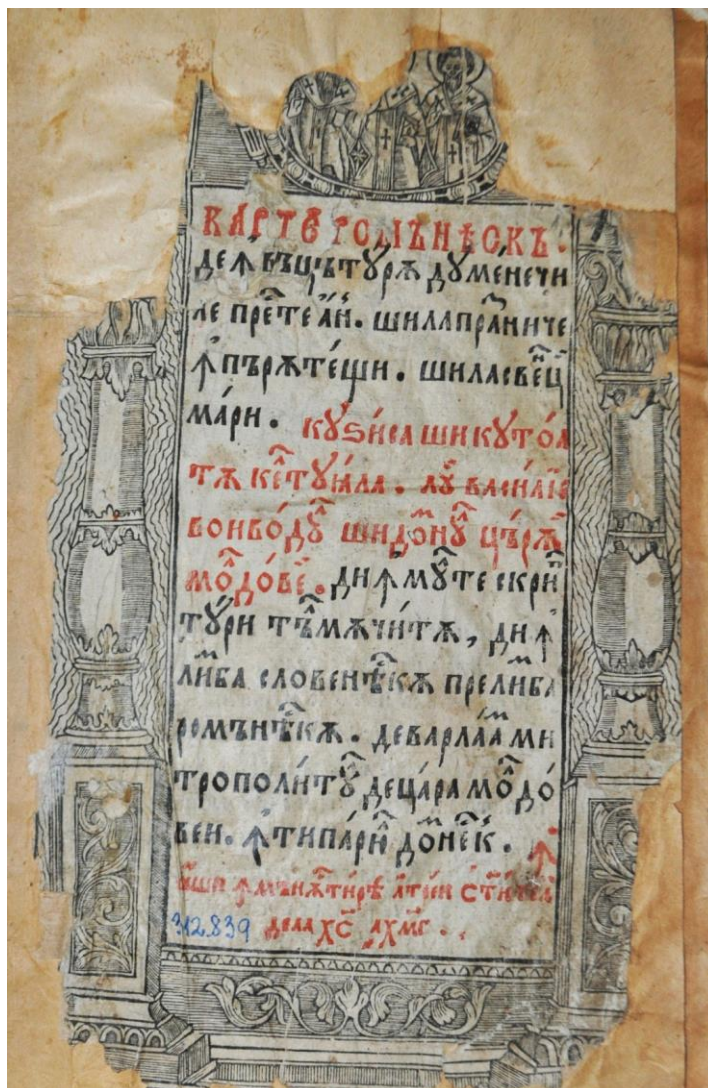 КАРТЕ РОМѪНѢСКЪ·
ДЕ Ꙟ ВЪЦЪТꙋРѪ ДꙋМЕ́НЕЧИ
ЛЕ ПРЕⷭ҇ТЕ А́Нⷩ҇. ШИЛА ПРАⷥ҇НИЧЕ
Ꙟ ПЪРѪТЕ́ЩИ. ШИЛА СВЕ́НЦⷩ҇
МА́РИ. КꙋЅИ́СА ШИ КꙋТО́А
ТѪ КЕⷧ҇ТꙋА́ЛА. Лꙋ́ ВАСИ́ЛІЕ
ВОИВО́Дꙋⷧ҇ ШИ ДО́МНꙋⷧ҇ ЦЪ́РѪⷧ҇
МОⷧ҇ДО́ВЕⷩ҇. ДИꙞ Мꙋⷧ҇ТЕ СКРИⷫ҇
ТꙋРИ ТЪⷧ҇МѪЧИ́ТѪ, ДИꙞ
ЛИ́Мⷨ҇БА СЛОВЕНѢ́ⷭ҇КѪ ПРЕ ЛИ́Мⷨ҇БА
РОМЪНѢ́ⷭ҇КѪ. ДЕ ВАРЛАА́Мⷨ҇ МИ
ТРОПОЛИ́Тꙋⷧ҇ ДЕ ЦА́РА МОⷧ҇ДО́
ВЕИ. Ꙟ ТИПА́РЮⷧ҇ ДОⷨ҇НЕ́Кⷭ҇. Ꙟ
Ꙟ МЪНѪⷭ҇ТИ́РѢ
312.839 ДЕЛА ХС҃ ҂АХМГ..